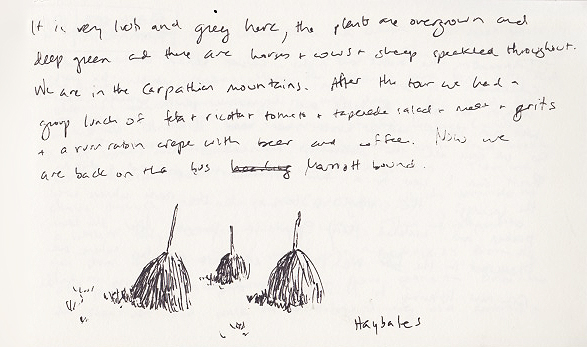 It is very lush and grey here, the plants are overgrown and
deep green and there are horses + cows + sheep speckled throughout.
We are in the Carpathian mountains. After the tour we had a
group lunch of feta + ricotta + tomato + tapenade salad + meat + grits
+ a rum raisin crepe with beer and coffee. Now we
are back on the bus Marriott bound.
Haybales